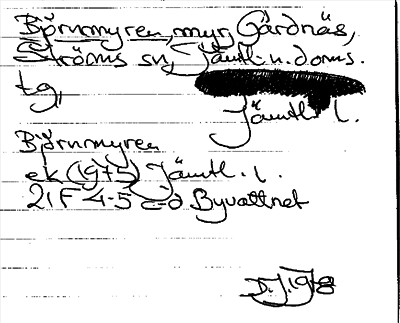 Björnmyren, myr, Gårdnäs,
Ströms sn, Jämtl. n. doms.
tg,
Jämtl. l.
Björnmyren
ek (1975) Jämtl. l.
21F 4-5 c-d Byvattnet
D.J. 1978